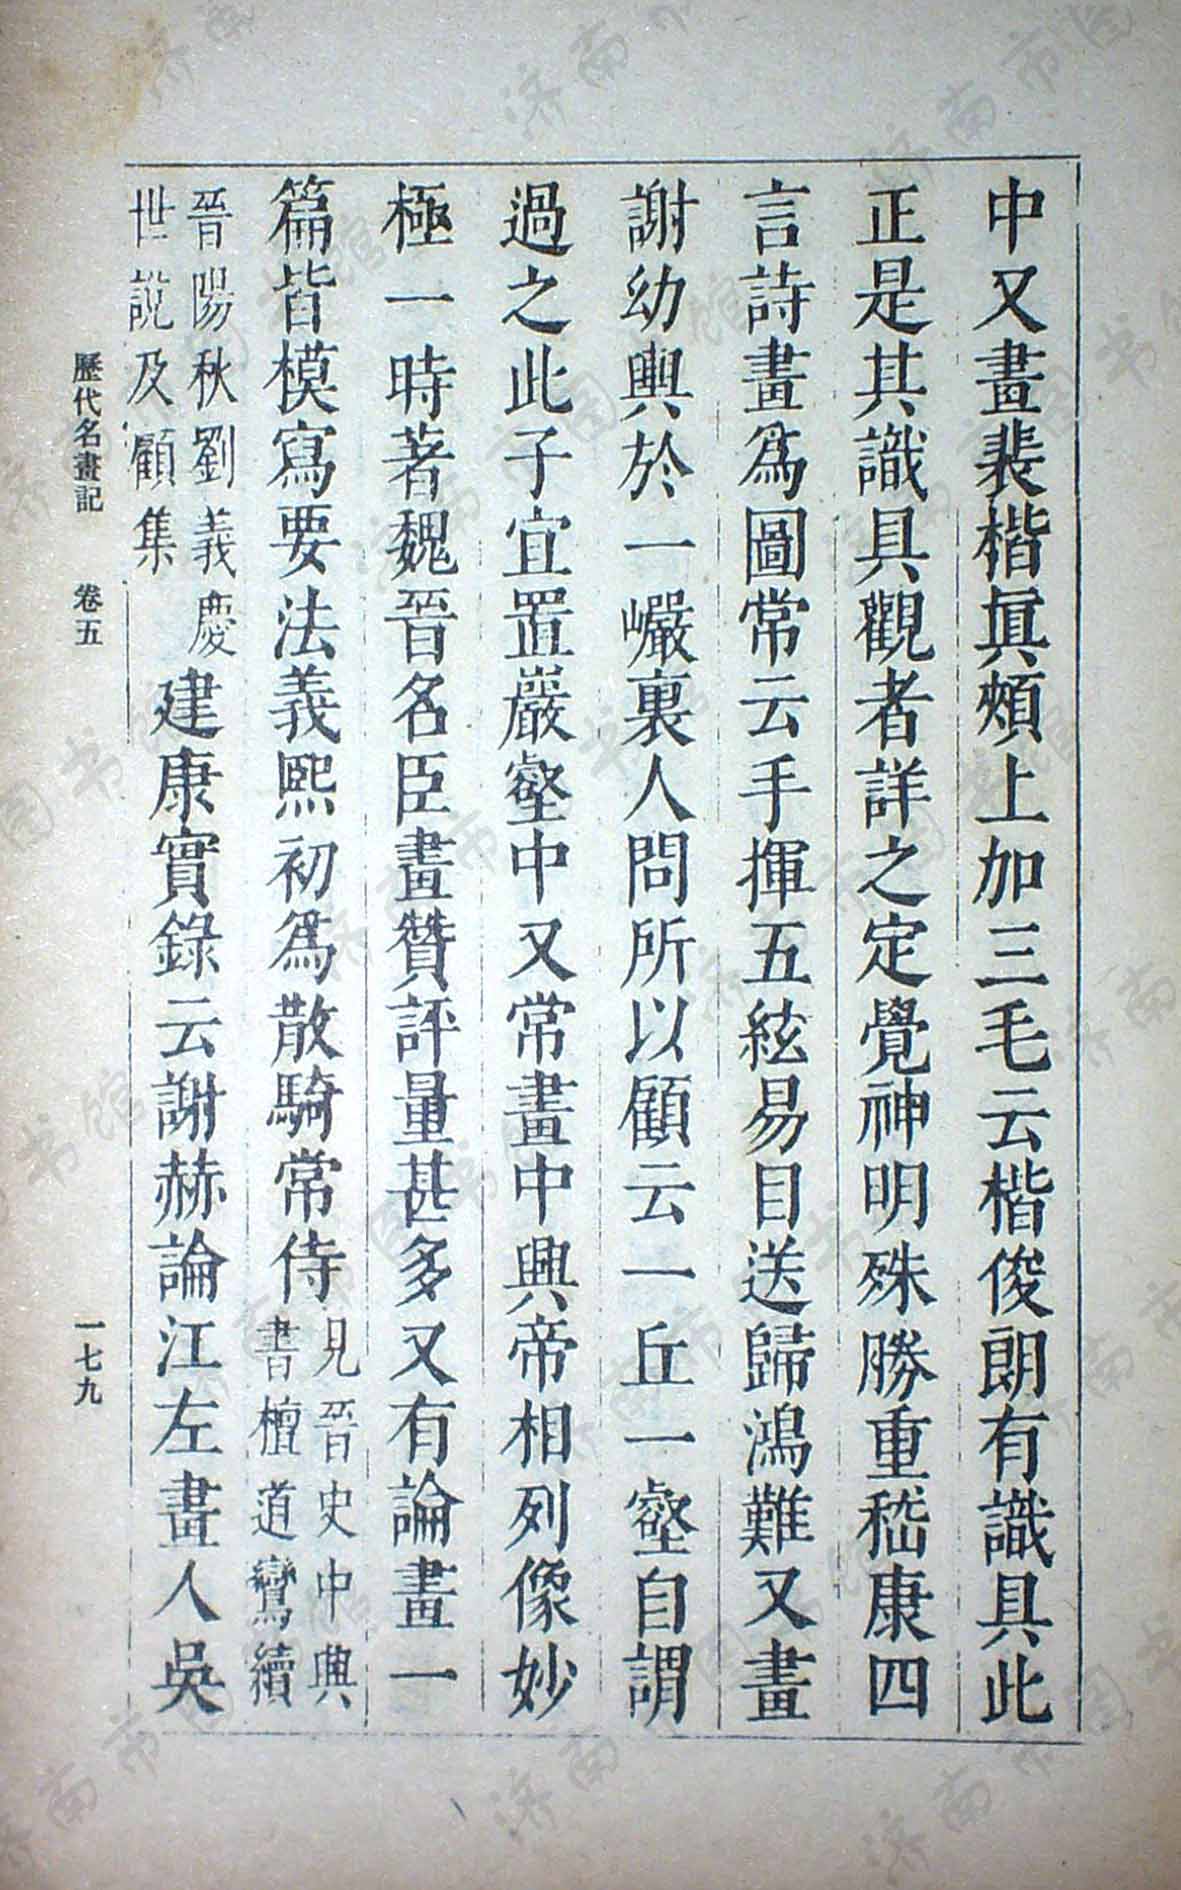 中又畫裴楷真頰上加三毛云楷俊朗有識具此
正是其識具觀者詳之定覺神明殊勝重嵇康四
言詩畫為圖常云手揮五絃易目送歸鴻難又畫
謝幼輿於一巖裏人問所以顧云一丘一壑自謂
過之此子宜置巖壑中又常畫中興帝相列像妙
極一時著魏晉名臣畫贊評量甚多又有論畫一
篇皆模寫要法義熙初為散騎常侍見晉史中興
書檀道鸞續
晉陽秋劉義慶
世說及顧集建康實錄云謝赫論江左畫人吳
歷代名畫記 卷五 一七九
济南市图书馆